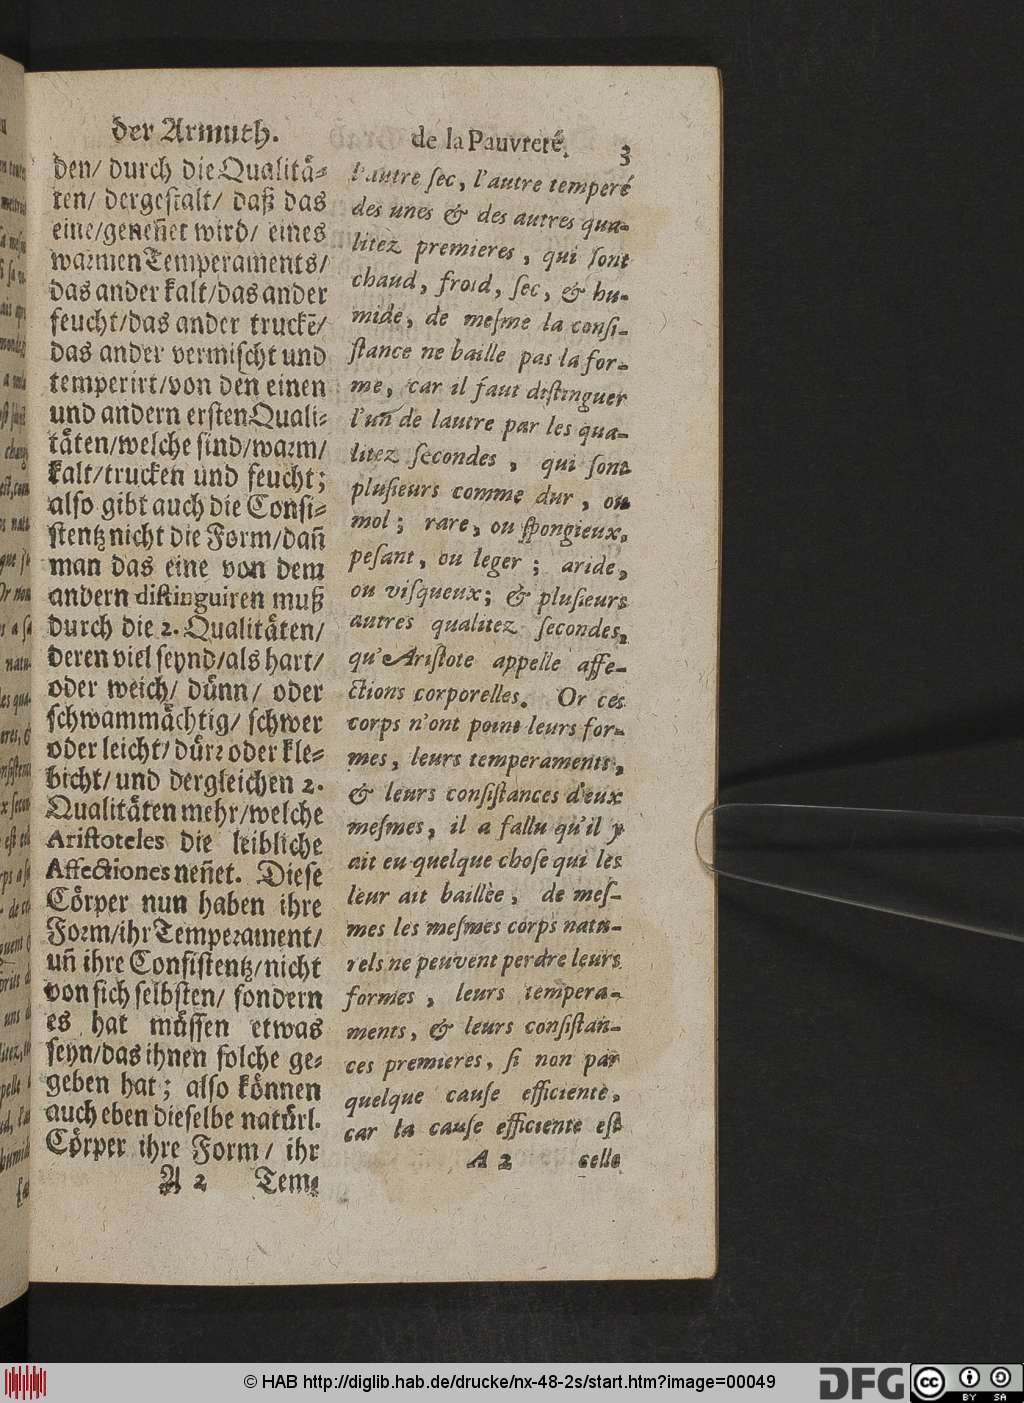 der Armuth.
den/ durch die Qualitä-
ten/ dergestalt/ daß das
eine/geneñet wird/ eines
warmen Temperaments/
das ander kalt/das ander
feucht/das ander truckē/
das ander vermischt und
temperirt/von den einen
und andern ersten Quali-
täten/welche sind/warm/
kalt/trucken und feucht;
also gibt auch die Consi-
stentz nicht die Form/dañ
man das eine von dem
andern distinguiren muß
durch die 2. Qualitäten/
deren viel seynd/als hart/
oder weich/ dünn/ oder
schwammächtig/ schwer
oder leicht/ dürr oder kle-
bicht/ und dergleichen 2.
Qualitäten mehr/welche
Aristoteles die leibliche
Affectiones neñet. Diese
Cörper nun haben ihre
Form/ihr Temperament/
uñ ihre Consistentz/nicht
von sich selbsten/ sondern
es hat müssen etwas
seyn/das ihnen solche ge-
geben hat; also können
auch eben dieselbe natürl.
Cörper ihre Form/ ihr
A 2 Tem-
de la Pauvreté. 3
l'autre ſec, l'autre temperé
des unes & des autres qua-
litez premieres, qui ſont
chaud, froid, ſec, & hu-
mide, de meſme la conſi-
ſtance ne baille pas la for-
me, car il faut diſtinguer
l'un de lautre par les qua-
litez ſecondes, qui ſont
pluſieurs comme dur, ou
mol; rare, ou ſpongieux,
peſant, ou leger; aride,
ou viſqueux; & pluſieurs
autres qualitez ſecondes,
qu'Ariſtote appelle affe-
ctions corporelles. Or ces
corps n'ont point leurs for-
mes, leurs temperaments,
& leurs conſiſtances d'eux
meſmes, il a fallu qu'il y
ait eu quelque choſe qui les
leur ait baillèe, de meſ-
mes les meſmes corps natu-
rels ne peuvent perdre leurs
formes, leurs tempera-
ments, & leurs conſiſtan-
ces premieres, ſi non par
quelque cauſe efficiente,
car la cauſe efficiente eſt
A 2 celle
© HAB http://diglib.hab.de/drucke/nx-48-2s/start.htm?image=00049
DFG
cc BY SA